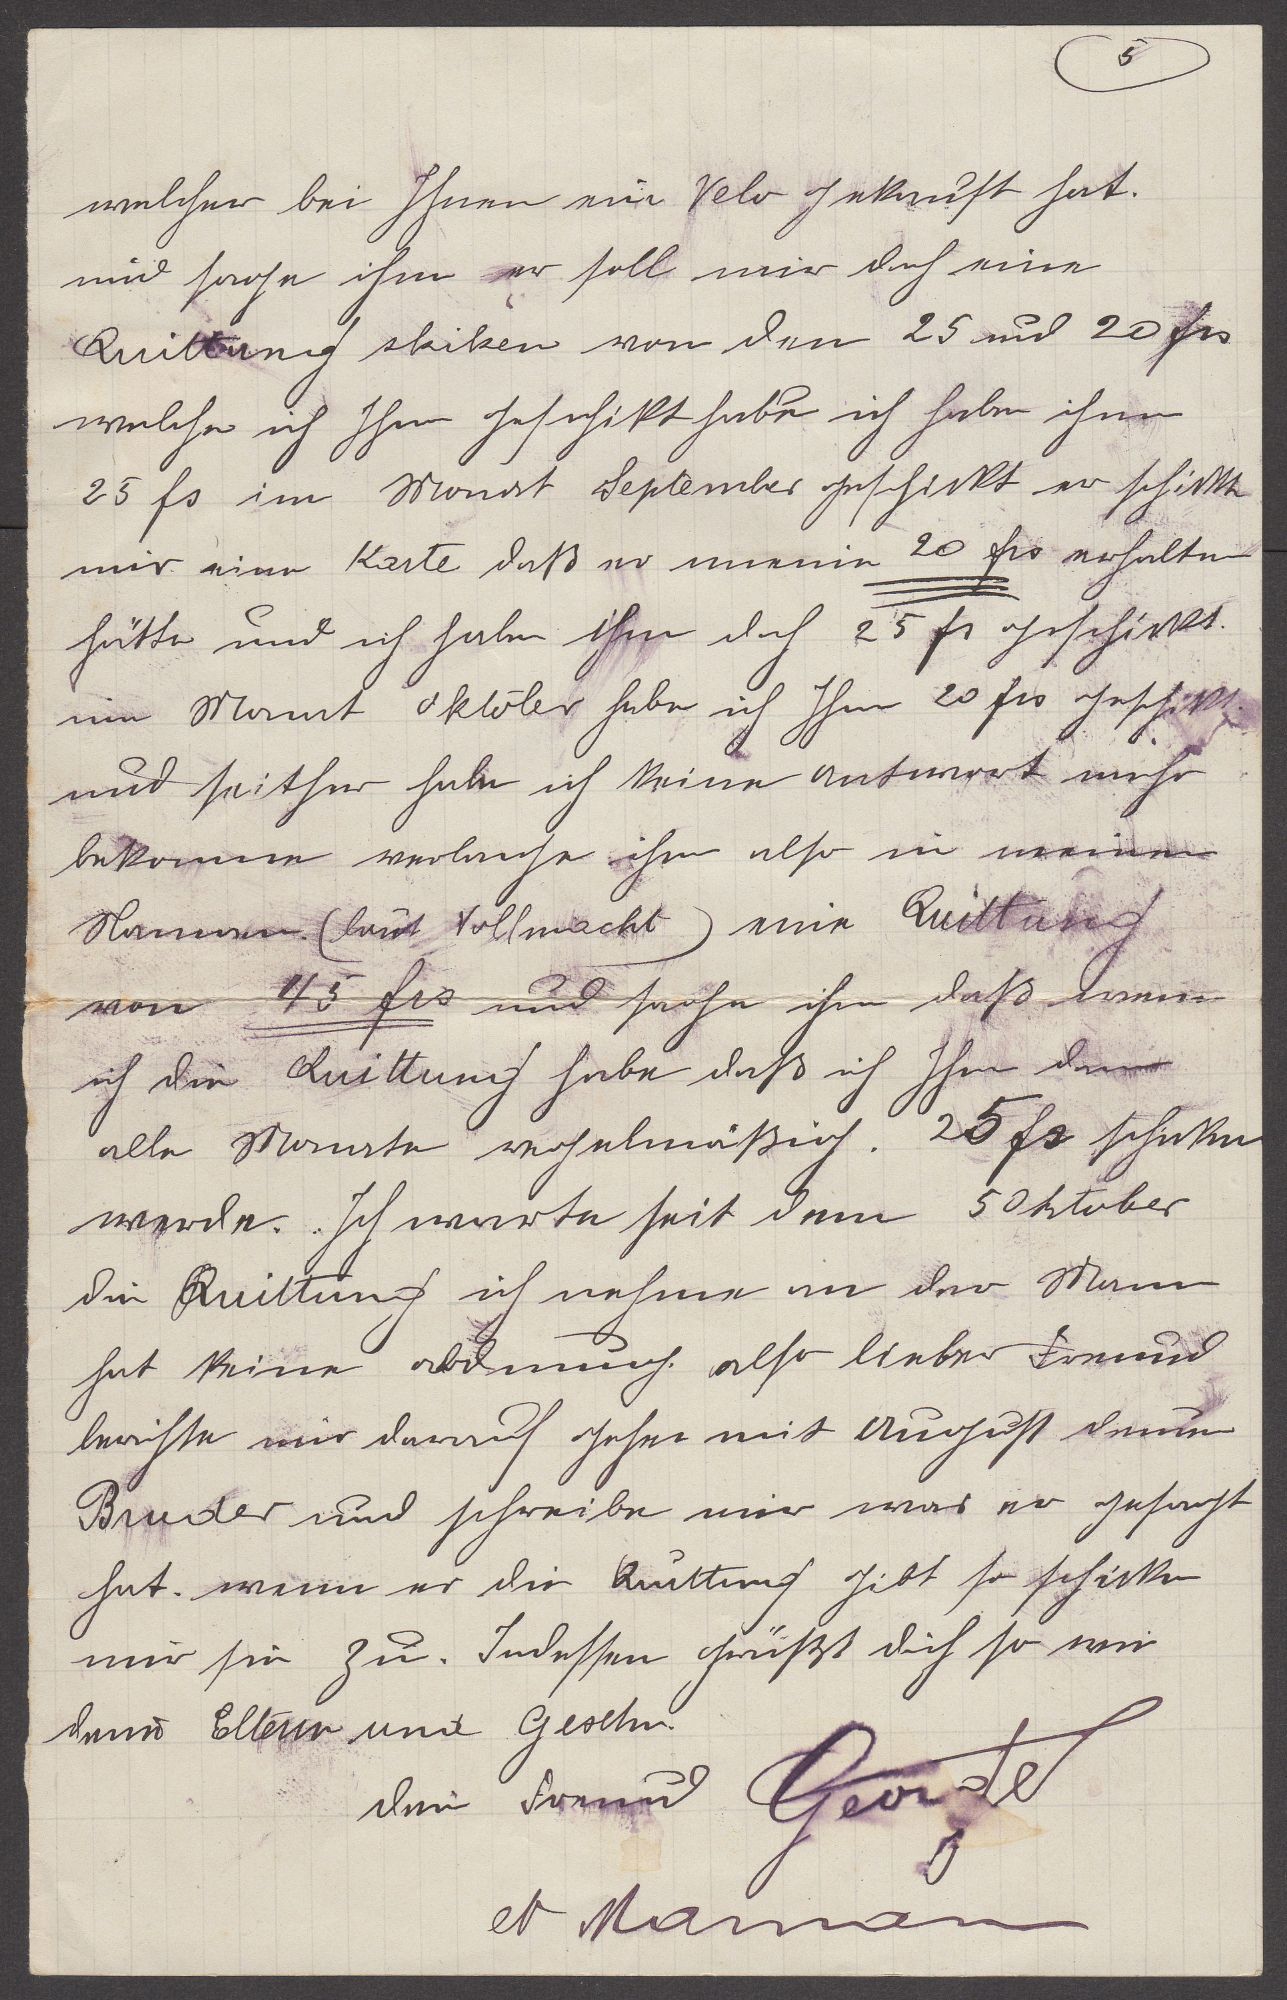 5
welcher bei Ihnen ein Velo gekauft hat.
und sage ihm er soll mir doch eine
Quittung skiken von den 25 und 20 frs
welche ich Ihm geschikt habe ich habe ihm
25 fs im Monat September geschickt er schikte
mir eine Karte daß er meine 20 frs erhalten
hätte und ich habe ihm doch 25 fr geschickt.
im Monat Oktober habe ich Ihm 20 frs geschikt.
und seither habe ich keine Antwort mehr
bekomme verlange ihm also in meinen
Namen. (laut Vollmacht) eine Quittung
von 45 frs und sage ihm daß wenn
ich die Quittung habe daß ich Ihm dann
alle Monate regelmäßig. 25 fs schicken
werde. Ich warte seit dem 5 Oktober
die Quittung ich nehme an der Mann
hat keine ordnung. also lieber Freund
berichte mir darauf gehe mit August deinem
Bruder und schreibe mir was er gesagt
hat. wenn er die Quittung gibt so schicke
mir sie zu. Indessen grüßt dich so wie
deine Eltern und Geschw.
dein Freund George
et Maman